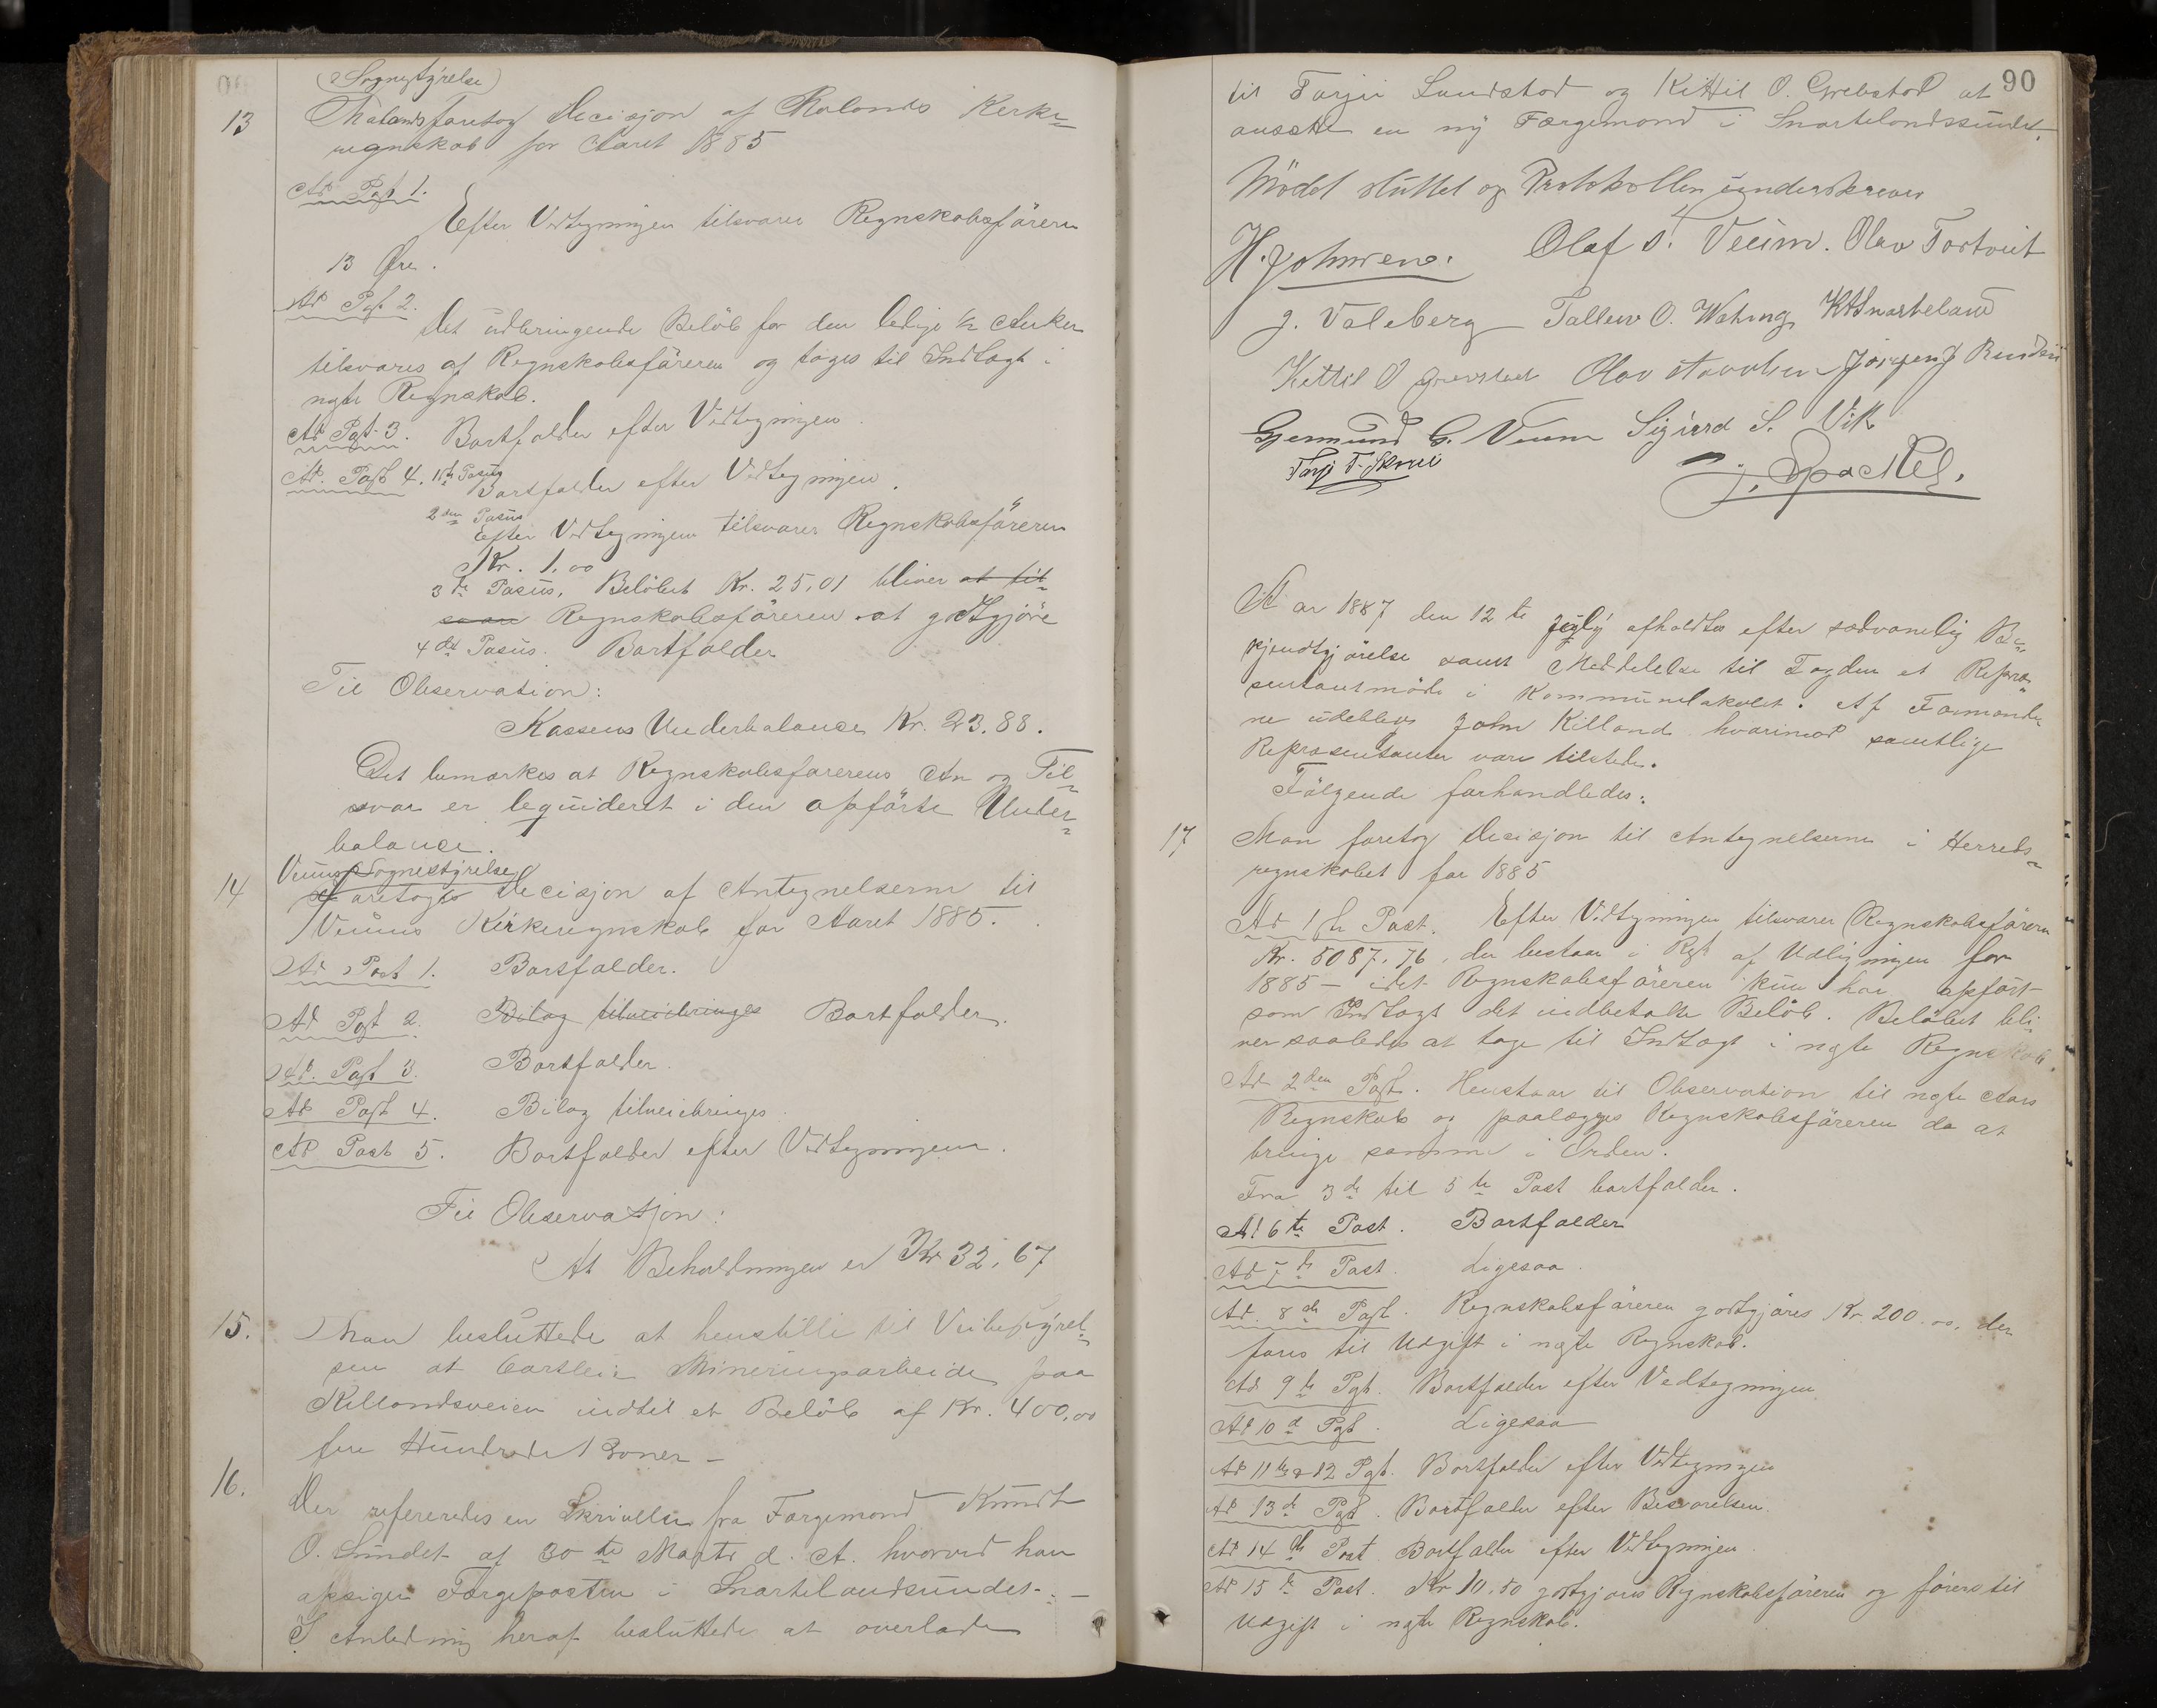 (Sognestyrelse)
13 foretog Decisjon af Rolands Kerke-
regnskab for Aaret 1885
Ad Post 1.
Efter Vedtegningen tilsvarer Regnskabsföreren
13 Øre.
Ad Post 2.
Det udbringende Belöb for den ledige 1/2 Anker
tilsvares af Regnskabsföreren og tages til Indtægt i
næste Regnskab.
Ad Post 3. Bortfalder efter Vedtegningen.
Ad. Post 4. 1ste Pasus
Bortfalder efter Vedtegningen.
2den Pasus
Efter Vedtegningen tilsvarer Regnskabsföreren
Kr. 1.00
3de Pasus, Belöbet Kr. 25,01 bliver at til-
svare Regnskabsföreren at godtgjöre
4de Pasus. Bortfalder
Til Observation:
Kassens Underbalance Kr. 23.88.
Det bemærkes at Regnskabsförerens An og Til-
svar er liquideret i den opförte Under-
balance.
Veums Sognestyrelse
14 Foretoges Decisjon af Antegnelserne til
Veums Kirkeregnskab for Aaret 1885.
Ad Post 1. Bortfalder.
Ad Post 2. Bilag tilveiebringes Bortfalder.
Ad. Post 3. Bortfalder.
Ad Post 4. Bilag tilveiebringes.
Ad Post 5. Bortfalder efter Vedtegningen.
Til Observasjon:
At Beholdningen er Kr 32.67
15. Man besluttede at henstille til Veibestyrel-
sen at bortleie Mineringsarbeide paa
Killandsveien indtil et Belöb af Kr. 400,00
fire Hundrede Kroner –
16. Der refereredes en Skrivelse fra Færgemand Knudt
O. Sundet af 30te Marts d. A. hvorved han
opsiger Færgeposten i Snartelandsundet. –
I Anledning heraf besluttedes at overlade
90
til Tarjei Sundstod og Kittil O. Grebstod at
ansætte en ny Færgemand i Snartelandssundet.
Mödet sluttet og Protokollen underskreven
H. Johnsens. Olaf S. Veum. Olav Tortveit
J. Valeberg Tallew O. Watning KHSnarteland
Kittil O Olav Jörgen J
Gjermund G. Veum Sigurd S. Vik
Tarji T.
J. Spockel.
Aar 1887 den 12te July afholdtes efter sædvanelig Be-
kjendtgjörelse samt Meddelelse til Fogden et Repræ-
sentantmöde i Kommunelokalet. Af Formænde-
ne udeblev John Killand hvorimod samtlige
Repræsentanter vare tilstede.
Fölgende forhandledes:
17 Man foretog Decisjon til Antegnelserne i Herreds-
regnskabet for 1885
Ad 1ste Post. Efter Vedtegningen tilsvarer Regnskabsföreren
Kr. 5087.76, der bestaar i Rest af Udligningen for
1885 – idet Regnskabsföreren kun har opfört
som Indtægt det indbetalte Belöb. Belöbet bli-
ver saaledes at tage til Indtægt i næste Regnskab.
Ad 2den Post. Henstaar til Observation til næste Aars
Regnskab og paalægges Regnskabsföreren da at
bringe samme i Orden.
Fra 3de til 5te Post bortfalder.
Ad 6te Post. Bortfalder
Ad 7de Post. Ligesaa.
Ad. 8de Post. Regnskabsföreren godtgjöres Kr. 200.00, der
föres til Udgift i næste Regnskab.
Ad 9de Post. Bortfalder efter Vedtegningen
Ad 10de Post. Ligesaa
Ad 11te & 12 Post. Bortfalder efter Vedtegningen
Ad 13de Post. Bortfalder efter Besvarelsen.
Ad 14de Post. Bortfalder efter Vedtegningen.
Ad 15de Post. Kr 10.50 godtgjöres Regnskabsföreren og föres til
Udgift i næste Regnskab.